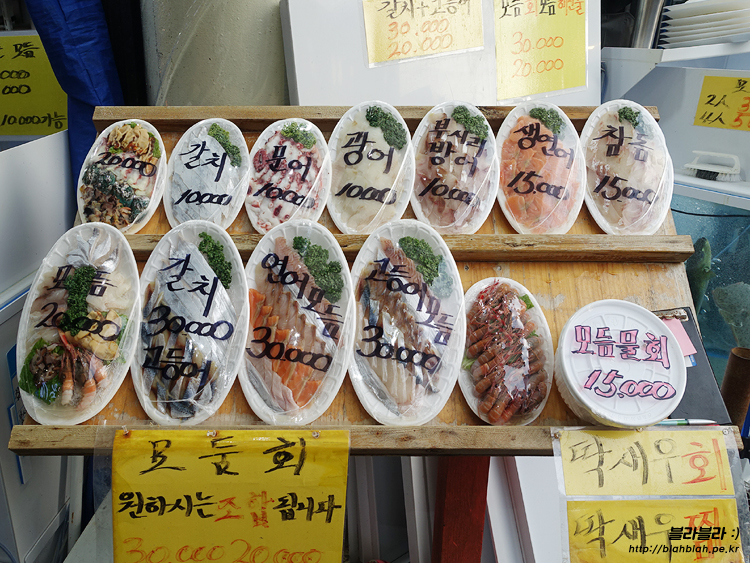 갈치+고등어
30.000
20.000
모듬회모듬해산물
30.000
20.000
000
000
10.000가능
2人
4人
20.000
갈치
10.000
문어
10.000
광어
10.000
부시리
방어
10.000
생연어
15.000
참돔
15.000
모듬
20.000
갈치
30.000
고등어
연어모듬
30.000
고등어모듬
30.000
모듬물회
15.000
모듬회
원하시는 조합됩니다
30.000 20.000
딱새우회
딱새우찜
블라블라 :)
http://blahblah.pe.kr